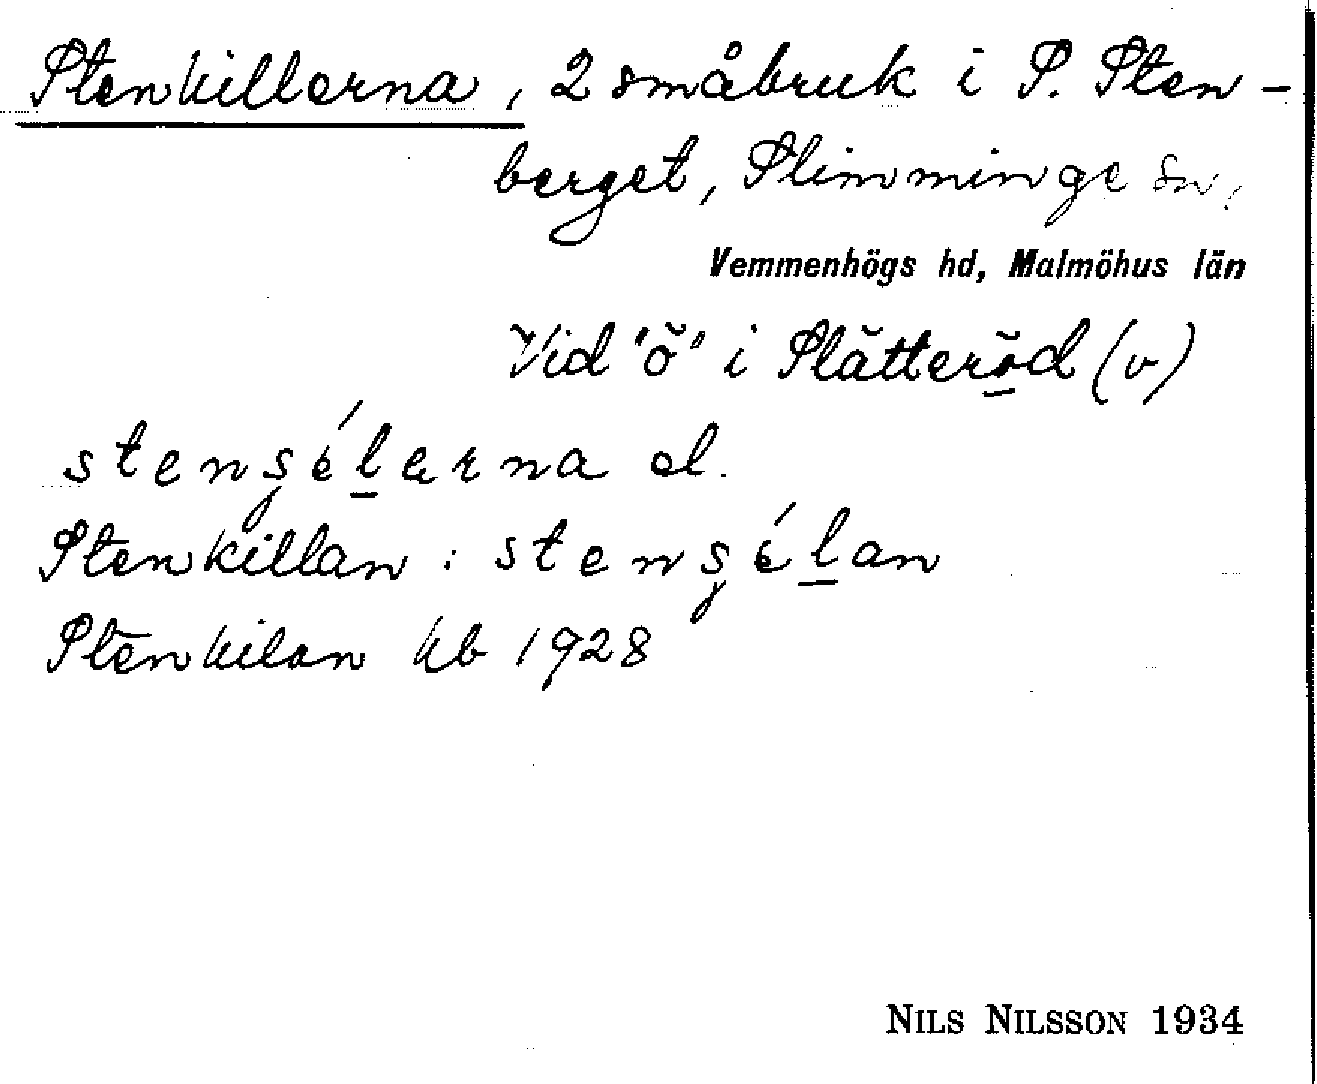 Stenkillerna, 2 småbruk i S. Sten-
berget, Slimminge sn,
Vemmenhögs hd, Malmöhus län
Vid "ö" i Slätteröd (v)
stenşélarna el.
Stenkillan : stenşélan
Stenkilan kb 1928
NILS NILSSON 1934